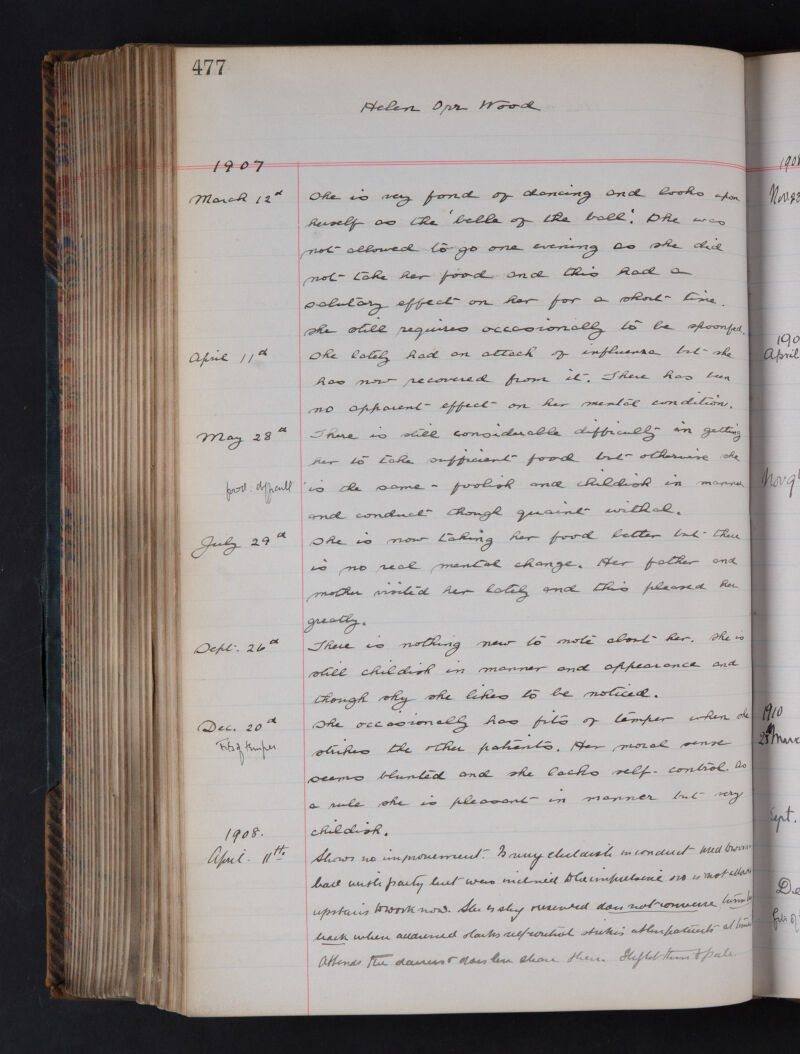 477
Helen Orr Wood
1907
March 12th She is very fond of dancing and looks upon
herself as the 'belle of the ball'. She was
not allowed to go one evening as she did
not take her food and this had a
salutary effect on her for a short time.
She still requires occasionally to be spoonfed.
April 11th She lately had an attack of influenza but she
has now recovered from it. There has been
no apparent effect on her mental condition.
May 28th There is still considerable difficulty in getting
her to take sufficient food but otherwise she
food. difficult is the same - foolish and childish in manner
and conduct though quaint withal.
July 29th She is now taking her food better but there
is no real mental change. Her father and
mother visited her lately and this pleased her
greatly.
Sept. 26th There is nothing new to note about her. She is
still childish in manner and appearance and
though shy she likes to be noticed.
Dec. 20th She occasionally has fits of temper when she
Fits of temper strikes the other patients. Her moral sense
seems blunted and she lacks self-control. As
a rule she is pleasant in manner but very
childish.
1908.
April. 11th Shows no improvement. Is very childish in conduct used to
ball with party but was inclined to be impulsive so is not allowed
upstairs to work now. She is shy reserved does not converse turns
back when addressed lacks self control strikes other patients at times
Attends the dances & does her share there. Slightly thin & pale.
1908
Nov
190
April
Nov
1910
25th March
Sept.
De
fits of